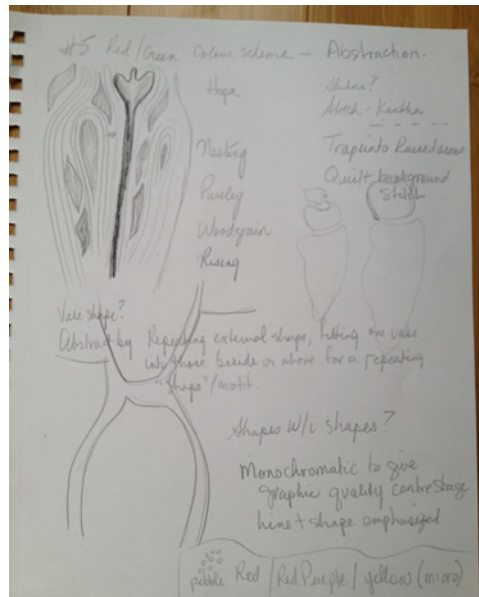 #5 Red/Green Colour scheme — Abstraction.
Hope
Stitch - Kantha
Nesting
Trapunto Raised areas
Paisley
Quilt background
stitch
Woodgrain
Rising
Vase shape?
Abstract by Repeating external shape, fitting one vase
into those beside or above for a repeating
"shape"/motif.
Shapes w/i shapes?
Monochromatic to give
graphic quality centre stage
Line + shape emphasized
pebble Red / Red Purple / yellow (micro)